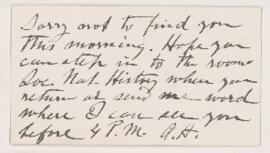 Sorry not to find you
this morning. Hope you
can step in to the rooms
Soc. Nat. History when you
return or send me word
where I can see you
before 4 P.M. A.H.